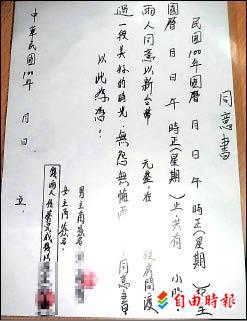 同意書
民國100年國曆 月 日 午 時正(星期 )至
國曆 月 日 午 時正(星期 )止共有 小時
兩人同意以新台幣 元整,在 後房間渡
過一個美好的時光 無怨無悔而 同意書
以此為憑!
男主角簽名:
女主角簽名:
中華民國100年 月 日 立
自由時報